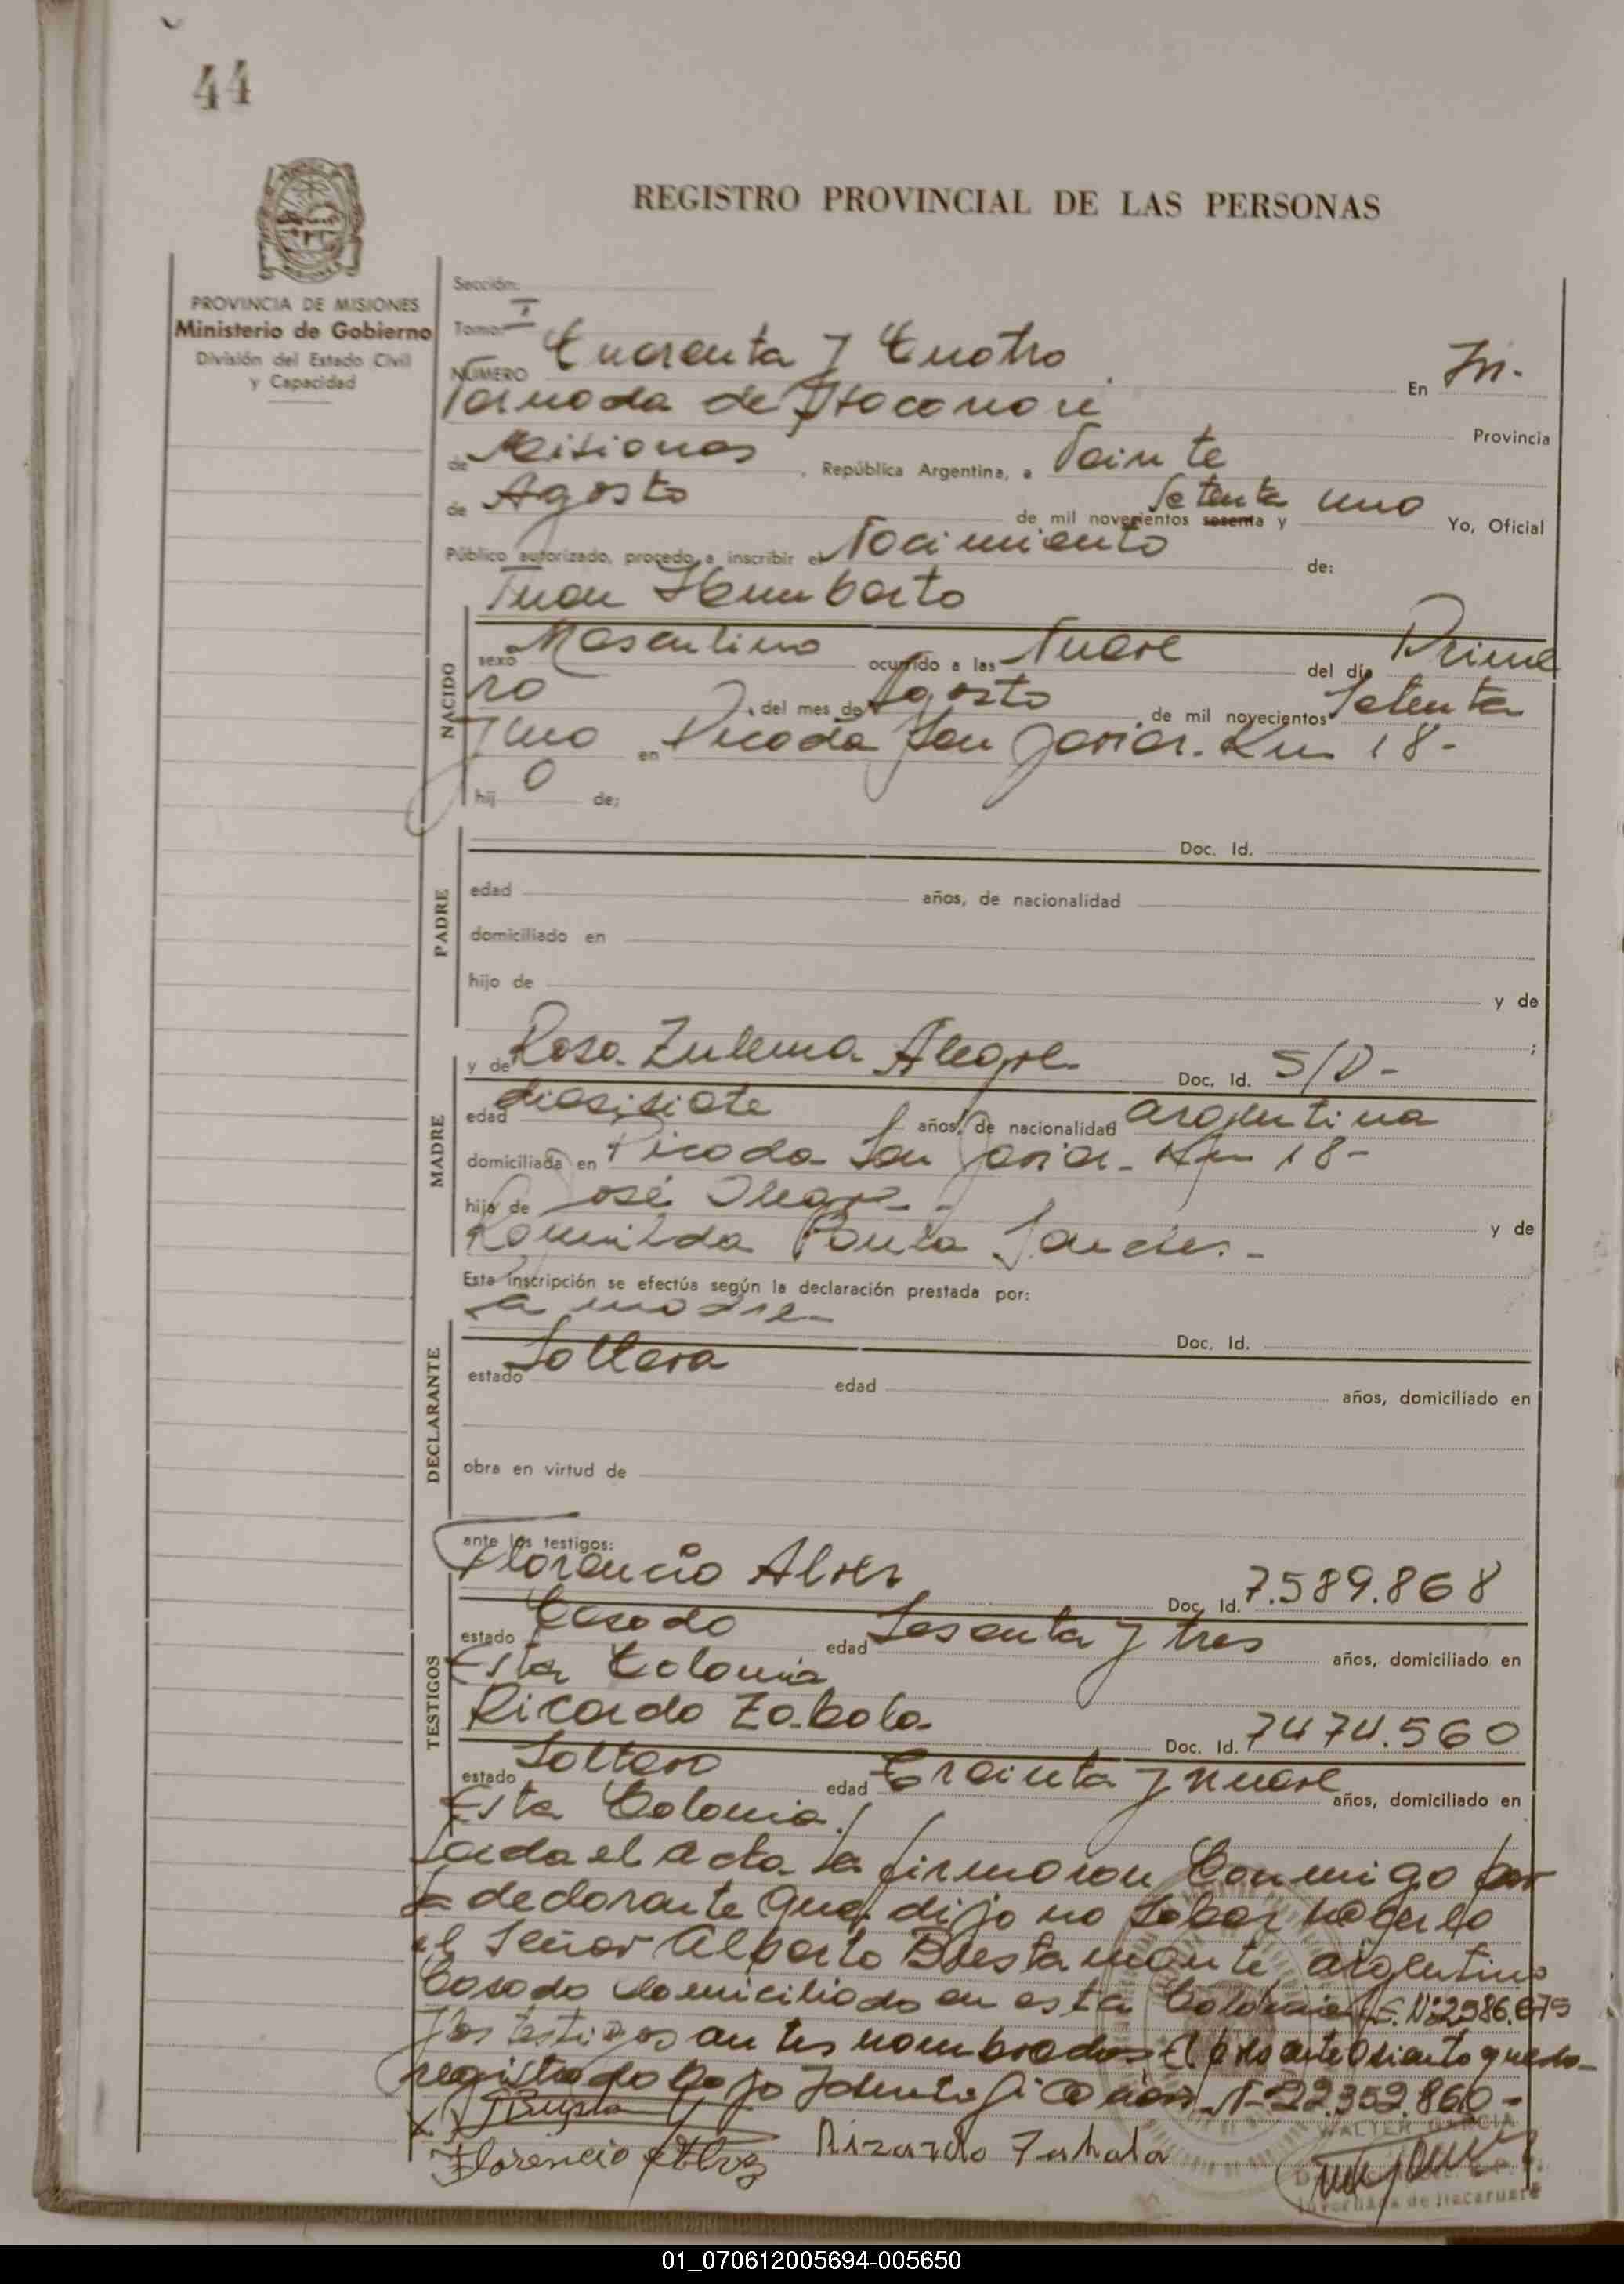 44
REGISTRO PROVINCIAL DE LAS PERSONAS
PROVINCIA DE MISIONES
Ministerio de Gobierno
División del Estado Civil
y Capacidad
Sección:
Tomo: I
NÚMERO Cuarenta y Cuatro. En In-
tornada de Itacaruaré Provincia
de Misiones, República Argentina, a Veinte
de Agosto de mil novecientos sesenta y Setenta uno Yo, Oficial
Público autorizado, procedo a inscribir el Nacimiento de:
Juan Humberto
NACIDO
sexo Masculino ocurrido a las Nueve del día Prime
ro del mes de Agosto de mil novecientos Setenta
y uno en Picada San Javier. Km 18-
hij o de:
PADRE
Doc. Id.
edad años, de nacionalidad
domiciliado en
hijo de y de
;
MADRE
y de Rosa Zulema Alegre Doc. Id. S/D-
edad diesisiete años, de nacionalidad argentina
domiciliada en Picada San Javier- Km 18-
hija de José Alegre- y de
Romilda Sanches.-
Esta inscripción se efectúa según la declaración prestada por:
La madre
DECLARANTE
Doc. Id.
estado Soltera edad años, domiciliado en
obra en virtud de
TESTIGOS
ante los testigos:
Florencio Alves Doc. Id. 7.589.868
estado Casado edad Sesenta y tres años, domiciliado en
Esta Colonia
Ricardo Zabala Doc. Id. 7474.560
estado Soltero edad Treinta y nueve años, domiciliado en
Esta Colonia./
Leida el acta la firmaron Conmigo por
la declarante que dijo no saber hacerlo
el Señor Alberto Bustamante, argentino
Casado domiciliado en esta Colonia
y los testigos antes nombrados El
registrado bajo Identificacion N- 22.352.860-
Florencio Alvez Rizardo Zabala
WALTER GARCIA
Intornada de Itacaruaré
01_070612005694-005650